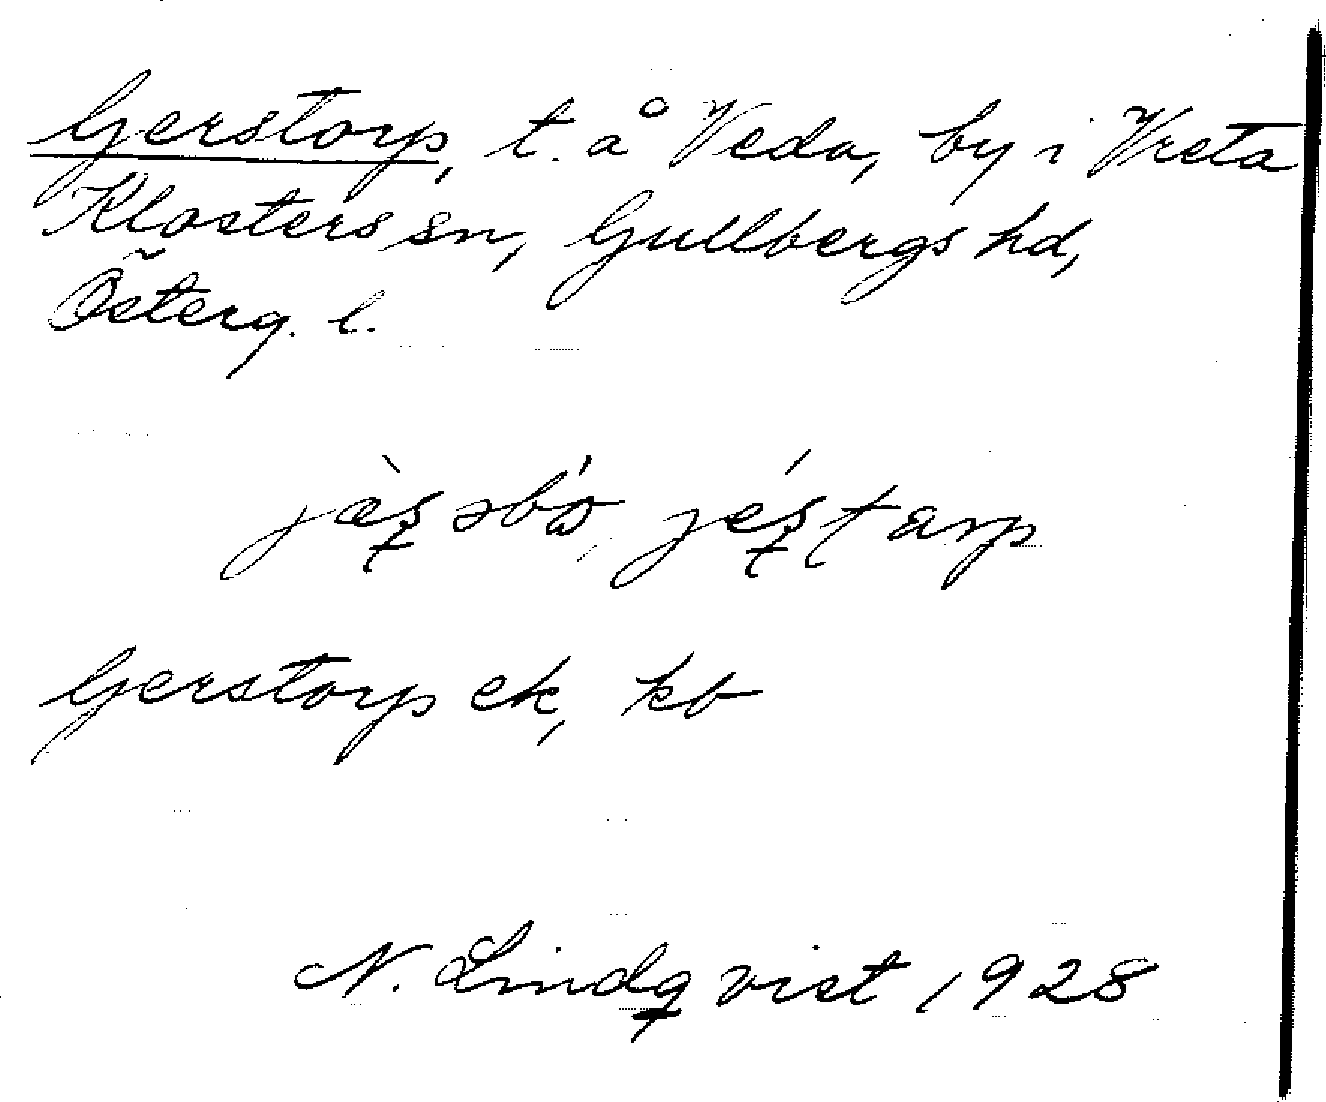 Gerstorp, t. å Veda, by i Vreta
Klosters sn, Gullbergs hd,
Österg. l.
Gerstorp ek, kb
N. Lindqvist 1928